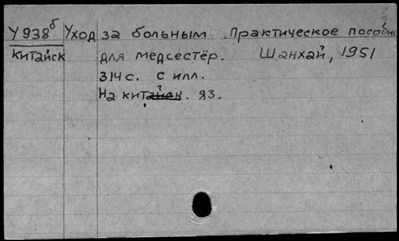 У938б Уход за больным. Практическое пособие
китайск для медсестёр. Шанхай, 1951
314с. с илл.
На китайск. яз.